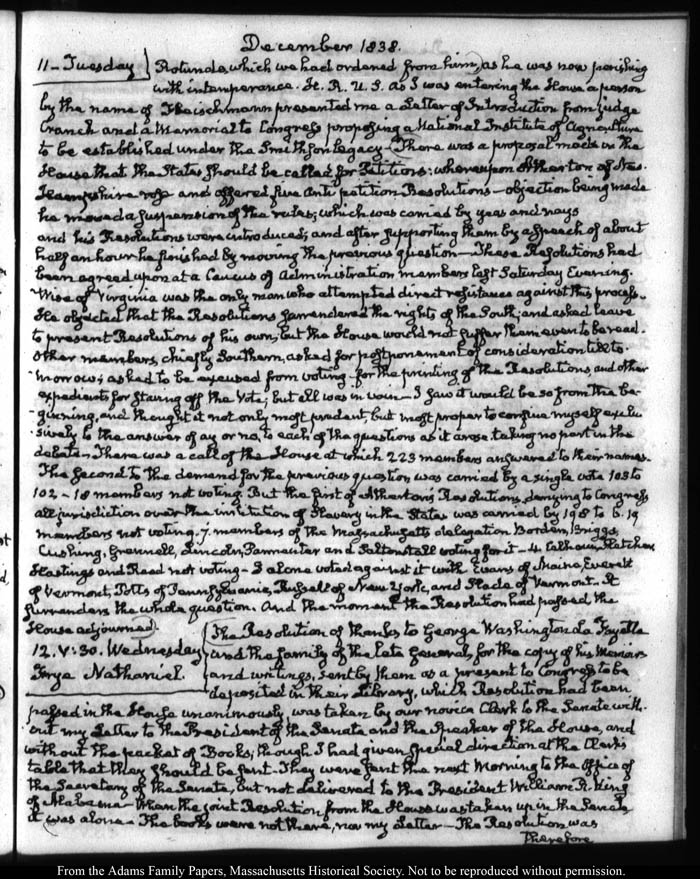 December 1838.
11 - Tuesday Rotunda, which we had ordered from him, as he was now perishing
with intemperance. H. R. U. S. As I was entering the House a person
by the name of Fleischmann presented me a Letter of Introduction from judge
Cranch and a Memorial to Congress proposing a National Institute of Agriculture
to be established under the Smithson Legacy - There was a proposal made in the
House that the States should be called for Petitions: whereupon Atherton of New-
Hampshire rose and offered five Anti petition Resolutions - objection being made
he moved a suspension of the rules, which was carried by yeas and nays
and his Resolutions were introduced; and after supporting them by a speech of about
half an hour he finished by moving the previous question - These Resolutions had
been agreed upon at a Caucus of Administration members last Saturday Evening.
Wise of Virginia was the only man who attempted direct resistance against this process.
He objected that the Resolutions surrendered the rights of the South; and asked leave
to present Resolutions of his own, but the House would not suffer them even to be read.
Other members, chiefly Southern, asked for postponement of consideration till to-
morrow; asked to be excused from voting - for the printing of the Resolutions, and other
expedients for staving off the Vote; but all was in vain - I saw it would be so from the be-
ginning, and thought it not only most prudent, but most proper to confine myself exclu-
sively to the answer of ay or no, to each of the questions as it arose taking no part in the
debate. There was a call of the House at which 223 members answered to their names.
The second to the demand for the previous question was carried by a single vote 103 to
102 - 18 members not voting. But the first of Atherton's Resolutions, denying to Congress
all jurisdiction over the institution of Slavery in the States was carried by 198 to 6. 19
members not voting. 7. members of the Massachusetts delegation Borden, Briggs,
Cushing, Grennell, Lincoln, Parmenter and Saltonstall voting for it - 4. Calhoun, Fletcher,
Hastings and Reed not voting - I alone voted against it with Evans of Maine, Everett
of Vermont, Potts of Pennsylvania, Russell of New York, and Slade of Vermont. It
surrenders the whole question. And the moment the Resolution had passed the
House adjourned.
12. V:30. Wednesday The Resolution of thanks to George Washington La Fayette
Frye Nathaniel. and the family of the late General, for the copy of his Memoirs
and writings, sent by them as a present to Congress to be
deposited in their Library, which Resolution had been
passed in the House unanimously, was taken by our novice Clerk to the Senate with-
out my Letter to the President of the Senate and the Speaker of the House, and
without the packet of Books, though I had given special direction at the Clerk's
table that they should be sent. They were sent the next Morning to the Office of
the Secretary of the Senate, but not delivered to the President William R. King
of Alabama - When the joint Resolution from the House was taken up in the Senate
it was alone - The books were not there, nor my Letter - The Resolution was
therefore
From the Adams Family Papers, Massachusetts Historical Society. Not to be reproduced without permission.